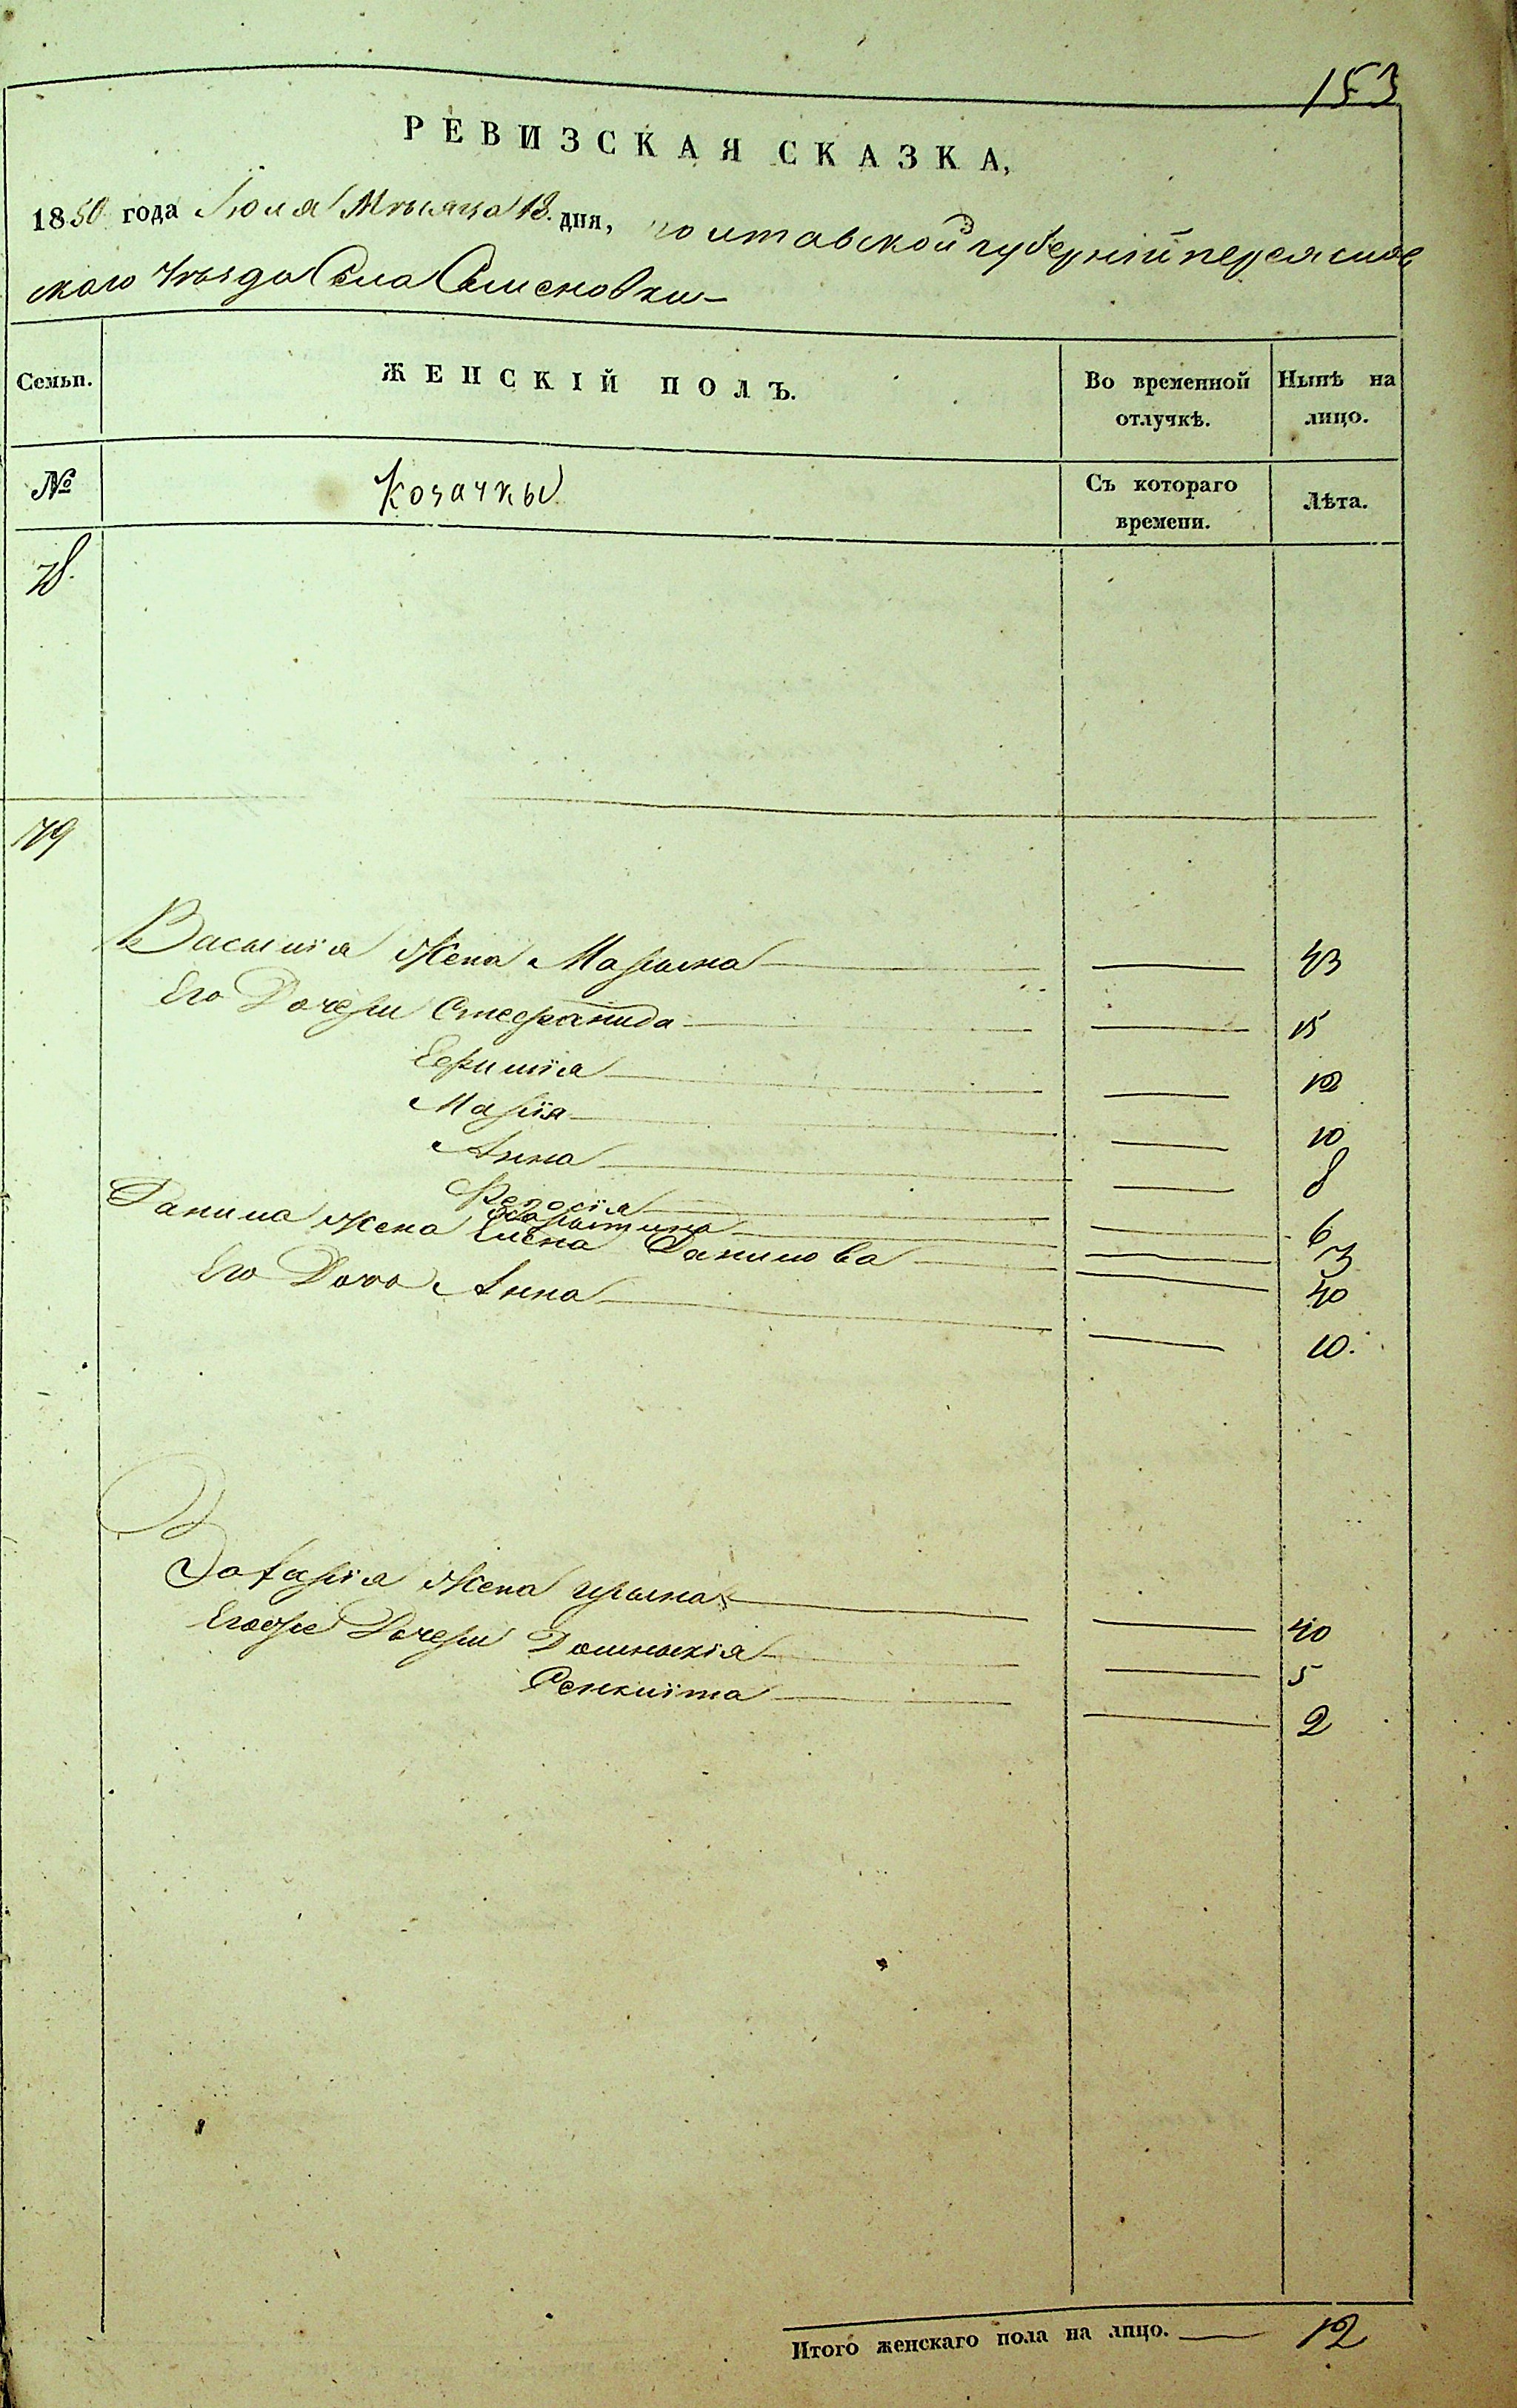 153
РЕВИЗСКАЯ СКАЗКА,
1850 года Іюля Мѣсяца 18. дня, полтавской губерніи переяслов
скаго Уѣзда Села
Семьи.
ЖЕНСКІЙ ПОЛЪ.
Во временной отлучкѣ.
Нынѣ на лицо.
№
Козачкы
Съ котораго времени.
Лѣта.
78.
179
Василія Жена Марына 43
Его Дочери Стефанида 15
Ефимія 12
Марія 10
Анна 8
Феодосія 6
3
Данила Жена Елена Данилова 40
Его Дочь Анна 10.
Захарія Жена Ирына 40
Егоже Дочери Домныкія 5
2
Итого женскаго пола на лицо. 12